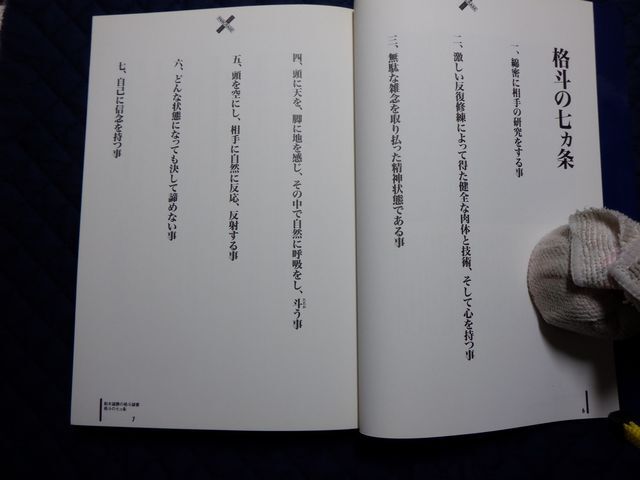 格斗の七ヵ条
一、綿密に相手の研究をする事
二、激しい反復修練によって得た健全な肉体と技術、そして心を持つ事
三、無駄な雑念を取り払った精神状態である事
6
四、頭に天を、脚に地を感じ、その中で自然に呼吸をし、斗う事
五、頭を空にし、相手に自然に反応、反射する事
六、どんな状態になっても決して諦めない事
七、自己に信念を持つ事
格斗の七ヵ条
7